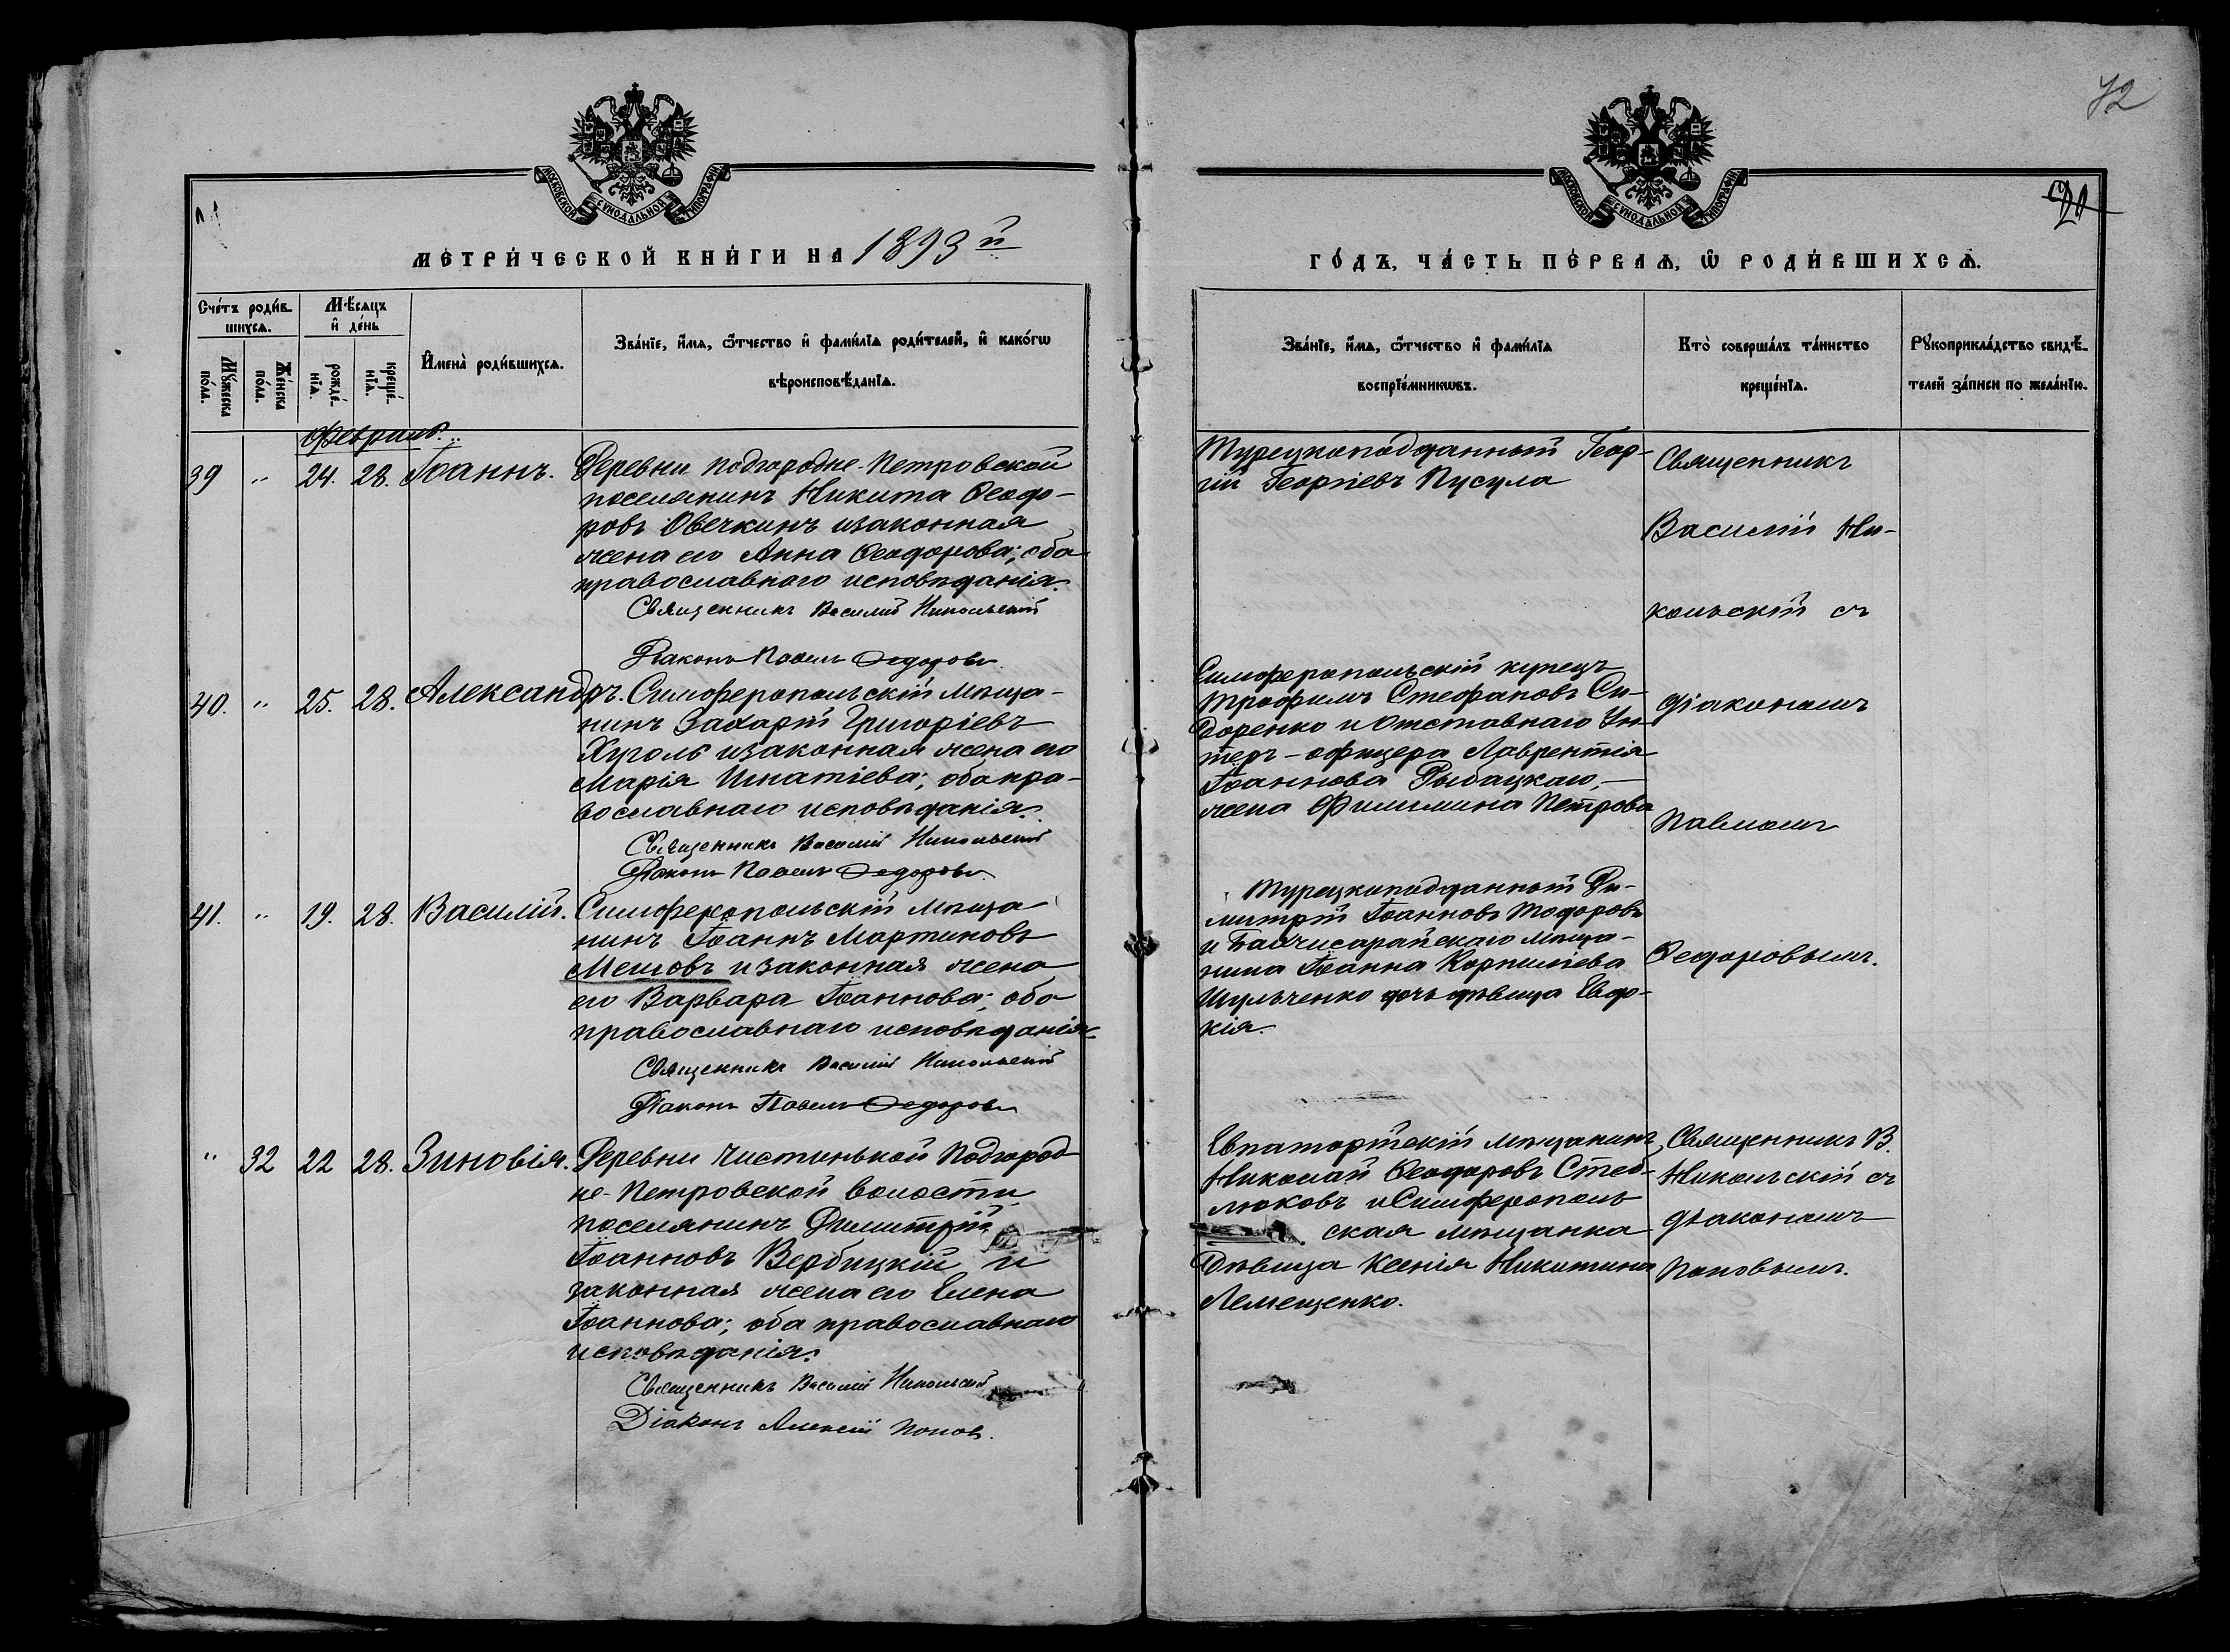 МОСКОВСКОЙ СѴНОДАЛЬНОЙ ТИПОГРАФІИ
МЕТРИЧЕСКОЙ КНИГИ НА 1893 й
Счетъ родив-
шихся.
Мѣсяцъ
и день
Мужеска
пола.
Женска
пола.
рожде-
нія.
креще-
нія.
Имена родившихся.
Званіе, имя, отчество и фамилія родителей, и какого
вѣроисповѣданія.
Февраль.
39 " 24. 28. Іоаннъ. Деревни Подгородне-Петровской
поселянинъ Никита Ѳеодо-
ровъ Овечкинъ и законная
жена его Анна Ѳеодорова; оба
православнаго исповѣданія.
Священникъ Василій Никольскій
Діаконъ Павелъ Федоровъ
40. " 25. 28. Александръ. Симферопольскій мѣща-
нинъ Захарій Григоріевъ
Хуроль и законная жена его
Марія Игнатіева; оба пра-
вославнаго исповѣданія.
Священникъ Василій Никольскій
Діаконъ Павелъ Федоровъ
41. " 19. 28. Василій. Симферопольскій мѣща-
нинъ Іоаннъ Мартиновъ
и законная жена
его Варвара Іоаннова; оба
православнаго исповѣданія
Священникъ Василій Никольскій
Діаконъ Павелъ Федоровъ
" 32 22 28. Зиновія. Деревни Чистинькой Подгород-
не-Петровской волости
поселянинъ Димитрій
Іоанновъ Вербицкій и
законная жена его Елена
Іоаннова; оба православнаго
исповѣданія.
Священникъ Василій Никольскій
Діаконъ Алексій Попов.
72
МОСКОВСКОЙ СѴНОДАЛЬНОЙ ТИПОГРАФІИ
ГОДЪ, ЧАСТЬ ПЕРВАЯ, Ѡ РОДИВШИХСЯ.
Званіе, имя, отчество и фамилія
воспріемниковъ.
Кто совершалъ таинство
крещенія.
Рукоприкладство свидѣ-
телей записи по желанію.
Турецкоподданный Геор-
гій Георгіевъ Пусула
Симферопольскій купецъ
Трофимъ Стефановъ Си-
доренко и отставнаго Ун-
теръ-офицера Лаврентія
Іоаннова Рыбацкаго,
жена Филимина Петрова
Турецкоподданный Ди-
митрій Іоанновъ Тодоровъ
и Бахчисарайскаго мѣща-
нина Іоанна Корниліева
Шульченко дочь дѣвица Евдо-
кія.
Евпаторійскій мѣщанинъ
Николай Ѳеодоровъ Стеб-
люковъ и Симферополь
ская мѣщанка
Дѣвица Ксенія Никитина
Лемещенко.
Священникъ
Василій Ни-
кольскій съ
діакономъ
Павломъ
Ѳедоровымъ.
Священникъ В.
Никольскій съ
діакономъ
Поповымъ.